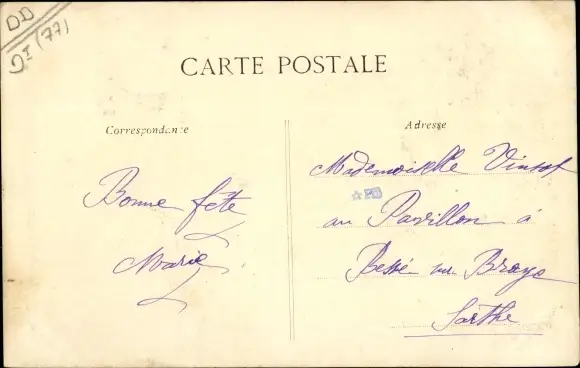 DD
DI (77)
CARTE POSTALE
Correspondance
Adresse
Bonne fête
Marie
Mademoiselle
au Pavillon à
Bessé sur Braye
Sarthe